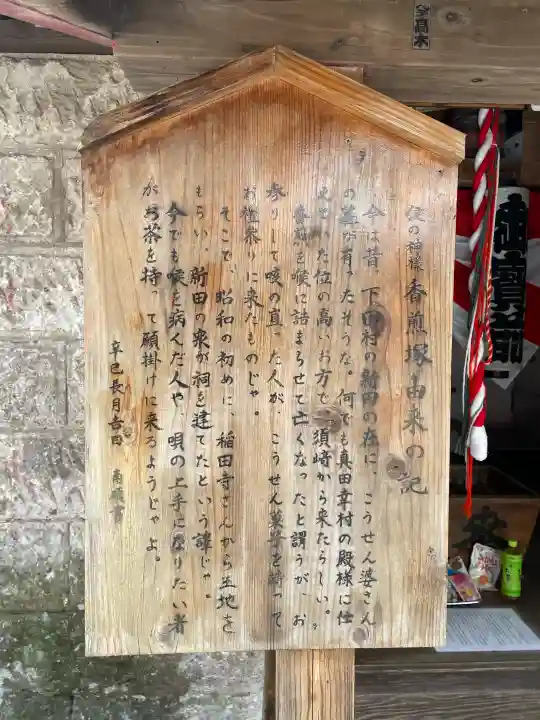 喉の神様 香煎塚由来の記
今は昔、下田村の新田の在に、こうせん婆さん
の墓が有ったそうな。何でも真田幸村の殿様に仕
えていた位の高いお方で、須崎から来たらしい。
香煎を喉に詰まらせて亡くなったと謂うが、お
参りして咳の直った人が、こうせん菓子を持って
お礼参りに来たものじゃ。
そこで、昭和の初めに、稲田寺さんから土地を
もらい、新田の衆が祠を建てたという譯じゃ。
今でも喉を病くだ人や、唄の上手になりたい者
がお茶を持って願掛けに来るようじゃよ。
辛巳長月吉日
御寳前